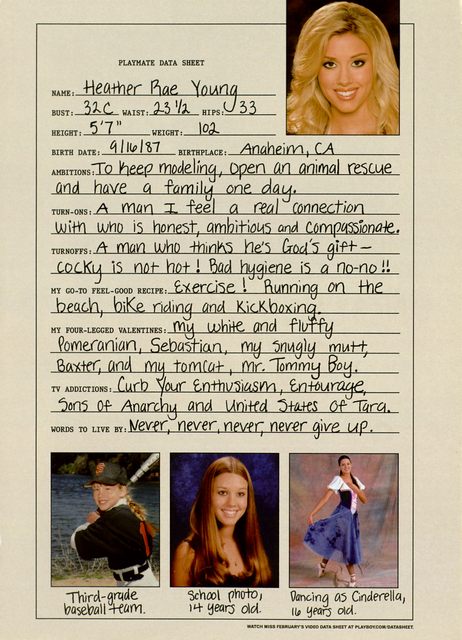 PLAYMATE DATA SHEET
NAME: Heather Rae Young
BUST: 32C WAIST: 23 1/2 HIPS: 33
HEIGHT: 5'7" WEIGHT: 102
BIRTH DATE: 9/16/87 BIRTHPLACE: Anaheim, CA
AMBITIONS: To keep modeling, open an animal rescue
and have a family one day.
TURN-ONS: A man I feel a real connection
with who is honest, ambitious and compassionate.
TURNOFFS: A man who thinks he's God's gift—
cocky is not hot! Bad hygiene is a no-no!!
MY GO-TO FEEL-GOOD RECIPE: Exercise! Running on the
beach, bike riding and kickboxing.
MY FOUR-LEGGED VALENTINES: my white and fluffy
Pomeranian, Sebastian, my snugly mutt,
Baxter, and my tomcat, mr. Tommy Boy.
TV ADDICTIONS: Curb Your Enthusiasm, Entourage,
Sons of Anarchy and United States of Tara.
WORDS TO LIVE BY: Never, never, never, never give up.
Third-grade
baseball team.
School photo,
14 years old.
Dancing as Cinderella,
16 years old.
WATCH MISS FEBRUARY'S VIDEO DATA SHEET AT PLAYBOY.COM/DATASHEET.